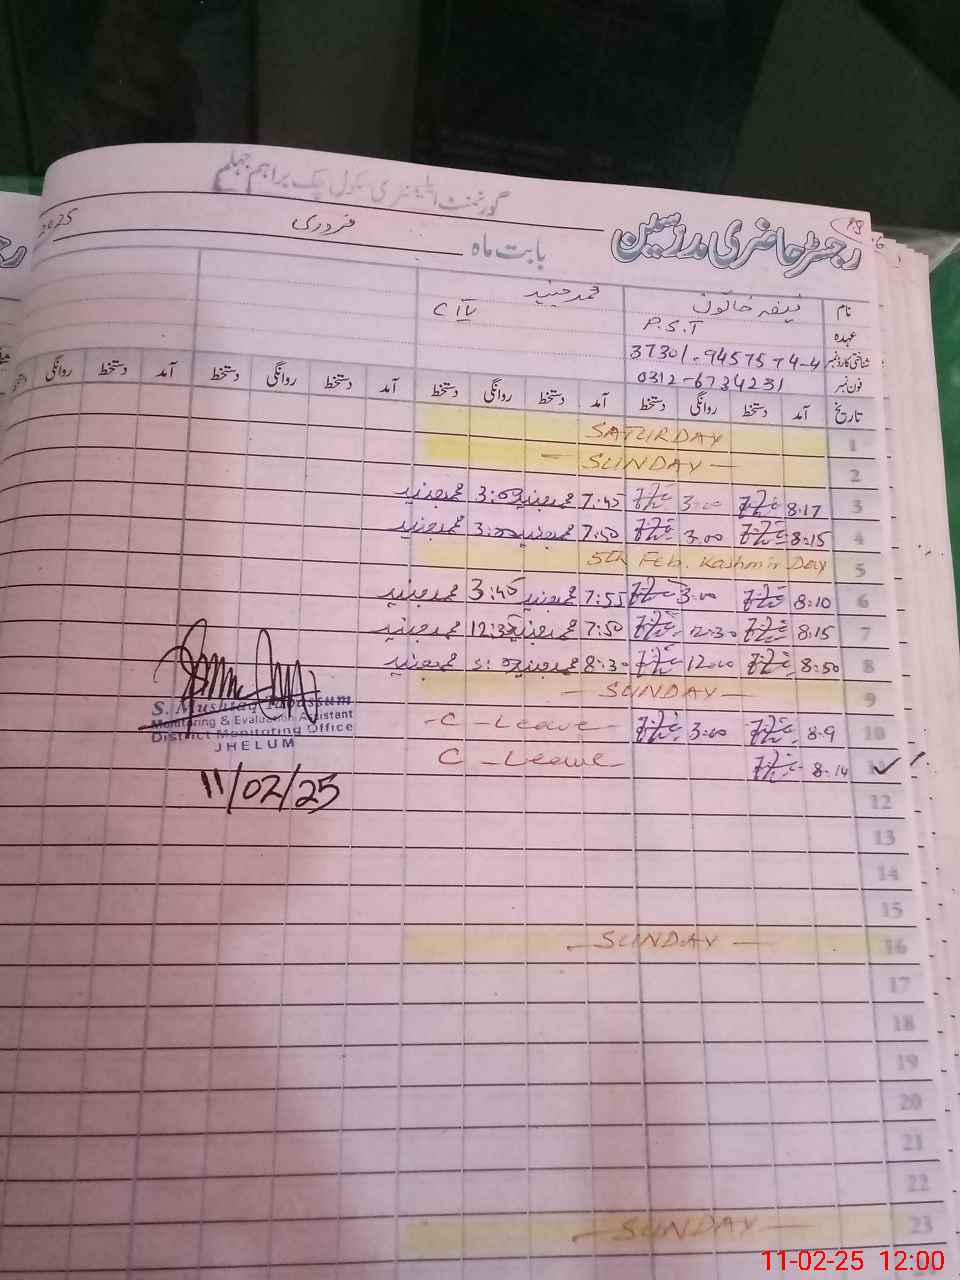 گورنمنٹ ایلیمنٹری سکول چک براہم جہلم
رجسٹر حاضری مدرسین
بابت ماہ فروری 2025
نام محمد جنید
عہدہ P.S.T C IV
شناختی کارڈ نمبر 37301-9457574-4
فون نمبر 0312-6734231
تاریخ آمد دستخط روانگی دستخط آمد دستخط روانگی دستخط آمد دستخط روانگی دستخط آمد دستخط روانگی دستخط
1 SATURDAY
2 - SUNDAY -
3 8:17 3:00 7:45 محمد جنید 3:00 محمد جنید
4 8:15 3:00 7:50 محمد جنید 3:00 محمد جنید
5 5th Feb. Kashmir Day
6 8:10 3:00 7:55 محمد جنید 3:45 محمد جنید
7 8:15 12:30 7:50 محمد جنید محمد جنید
8 8:50 12:00 8:30 محمد جنید محمد جنید
9 - SUNDAY -
10 8:9 3:00 - C - Leave
11 8:14 C - Leave
S. Mushtaq Tabassum
Monitoring & Evaluation Assistant
District Monitoring Office
JHELUM
11/02/25
12
13
14
15
16 - SUNDAY -
17
18
19
20
21
22
23 - SUNDAY -
11-02-25 12:00